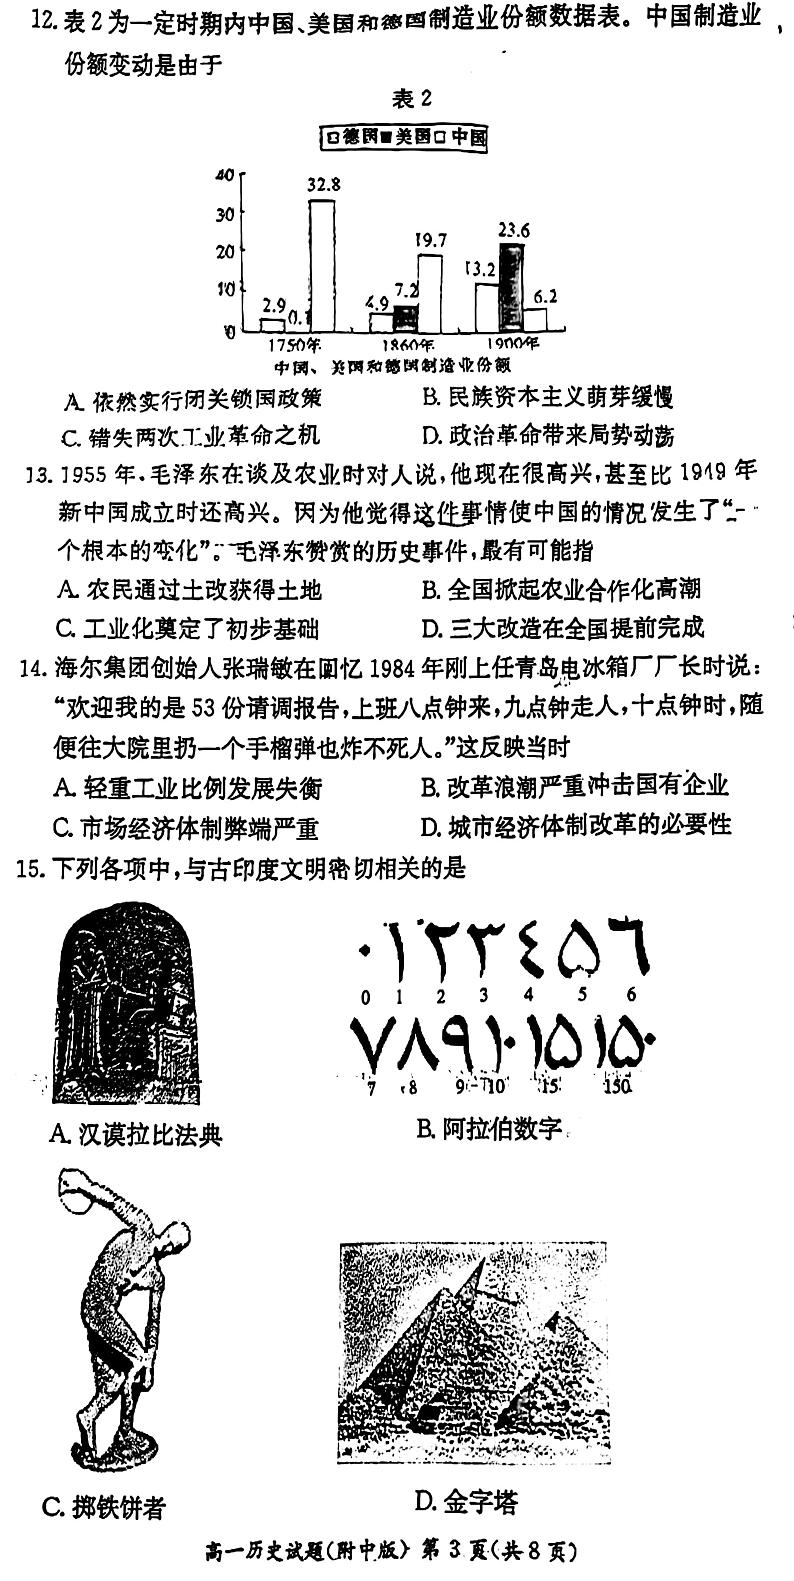 12. 表 2 为一定时期内中国、美国和德国制造业份额数据表。中国制造业
份额变动是由于
表 2
德国 美国 中国
40
30
20
10
0
2.9 0.1 32.8
4.9 7.2 19.7
13.2 23.6 6.2
1750年 1860年 1900年
中国、美国和德国制造业份额
A. 依然实行闭关锁国政策 B. 民族资本主义萌芽缓慢
C. 错失两次工业革命之机 D. 政治革命带来局势动荡
13. 1955 年,毛泽东在谈及农业时对人说,他现在很高兴,甚至比 1949 年
新中国成立时还高兴。因为他觉得这件事情使中国的情况发生了“一
个根本的变化”。毛泽东赞赏的历史事件,最有可能指
A. 农民通过土改获得土地 B. 全国掀起农业合作化高潮
C. 工业化奠定了初步基础 D. 三大改造在全国提前完成
14. 海尔集团创始人张瑞敏在回忆 1984 年刚上任青岛电冰箱厂厂长时说:
“欢迎我的是 53 份请调报告,上班八点钟来,九点钟走人,十点钟时,随
便往大院里扔一个手榴弹也炸不死人。”这反映当时
A. 轻重工业比例发展失衡 B. 改革浪潮严重冲击国有企业
C. 市场经济体制弊端严重 D. 城市经济体制改革的必要性
15. 下列各项中,与古印度文明密切相关的是
٠ ١ ٢ ٣ ٤ ٥ ٦
0 1 2 3 4 5 6
٧ ٨ ٩ ١٠ ١٥ ١٥٠
7 8 9 10 15 150
A. 汉谟拉比法典 B. 阿拉伯数字
C. 掷铁饼者 D. 金字塔
高一历史试题(附中版) 第 3 页(共 8 页)